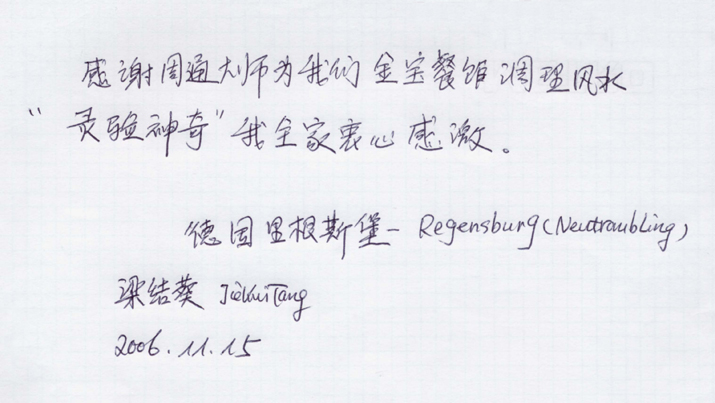 感谢周通大师为我们金宝餐馆调理风水
“灵验神奇”我全家衷心感激。
德国里根斯堡－Regensburg(Neutraubling)
梁结葵 JieKuiTang
2006.11.15